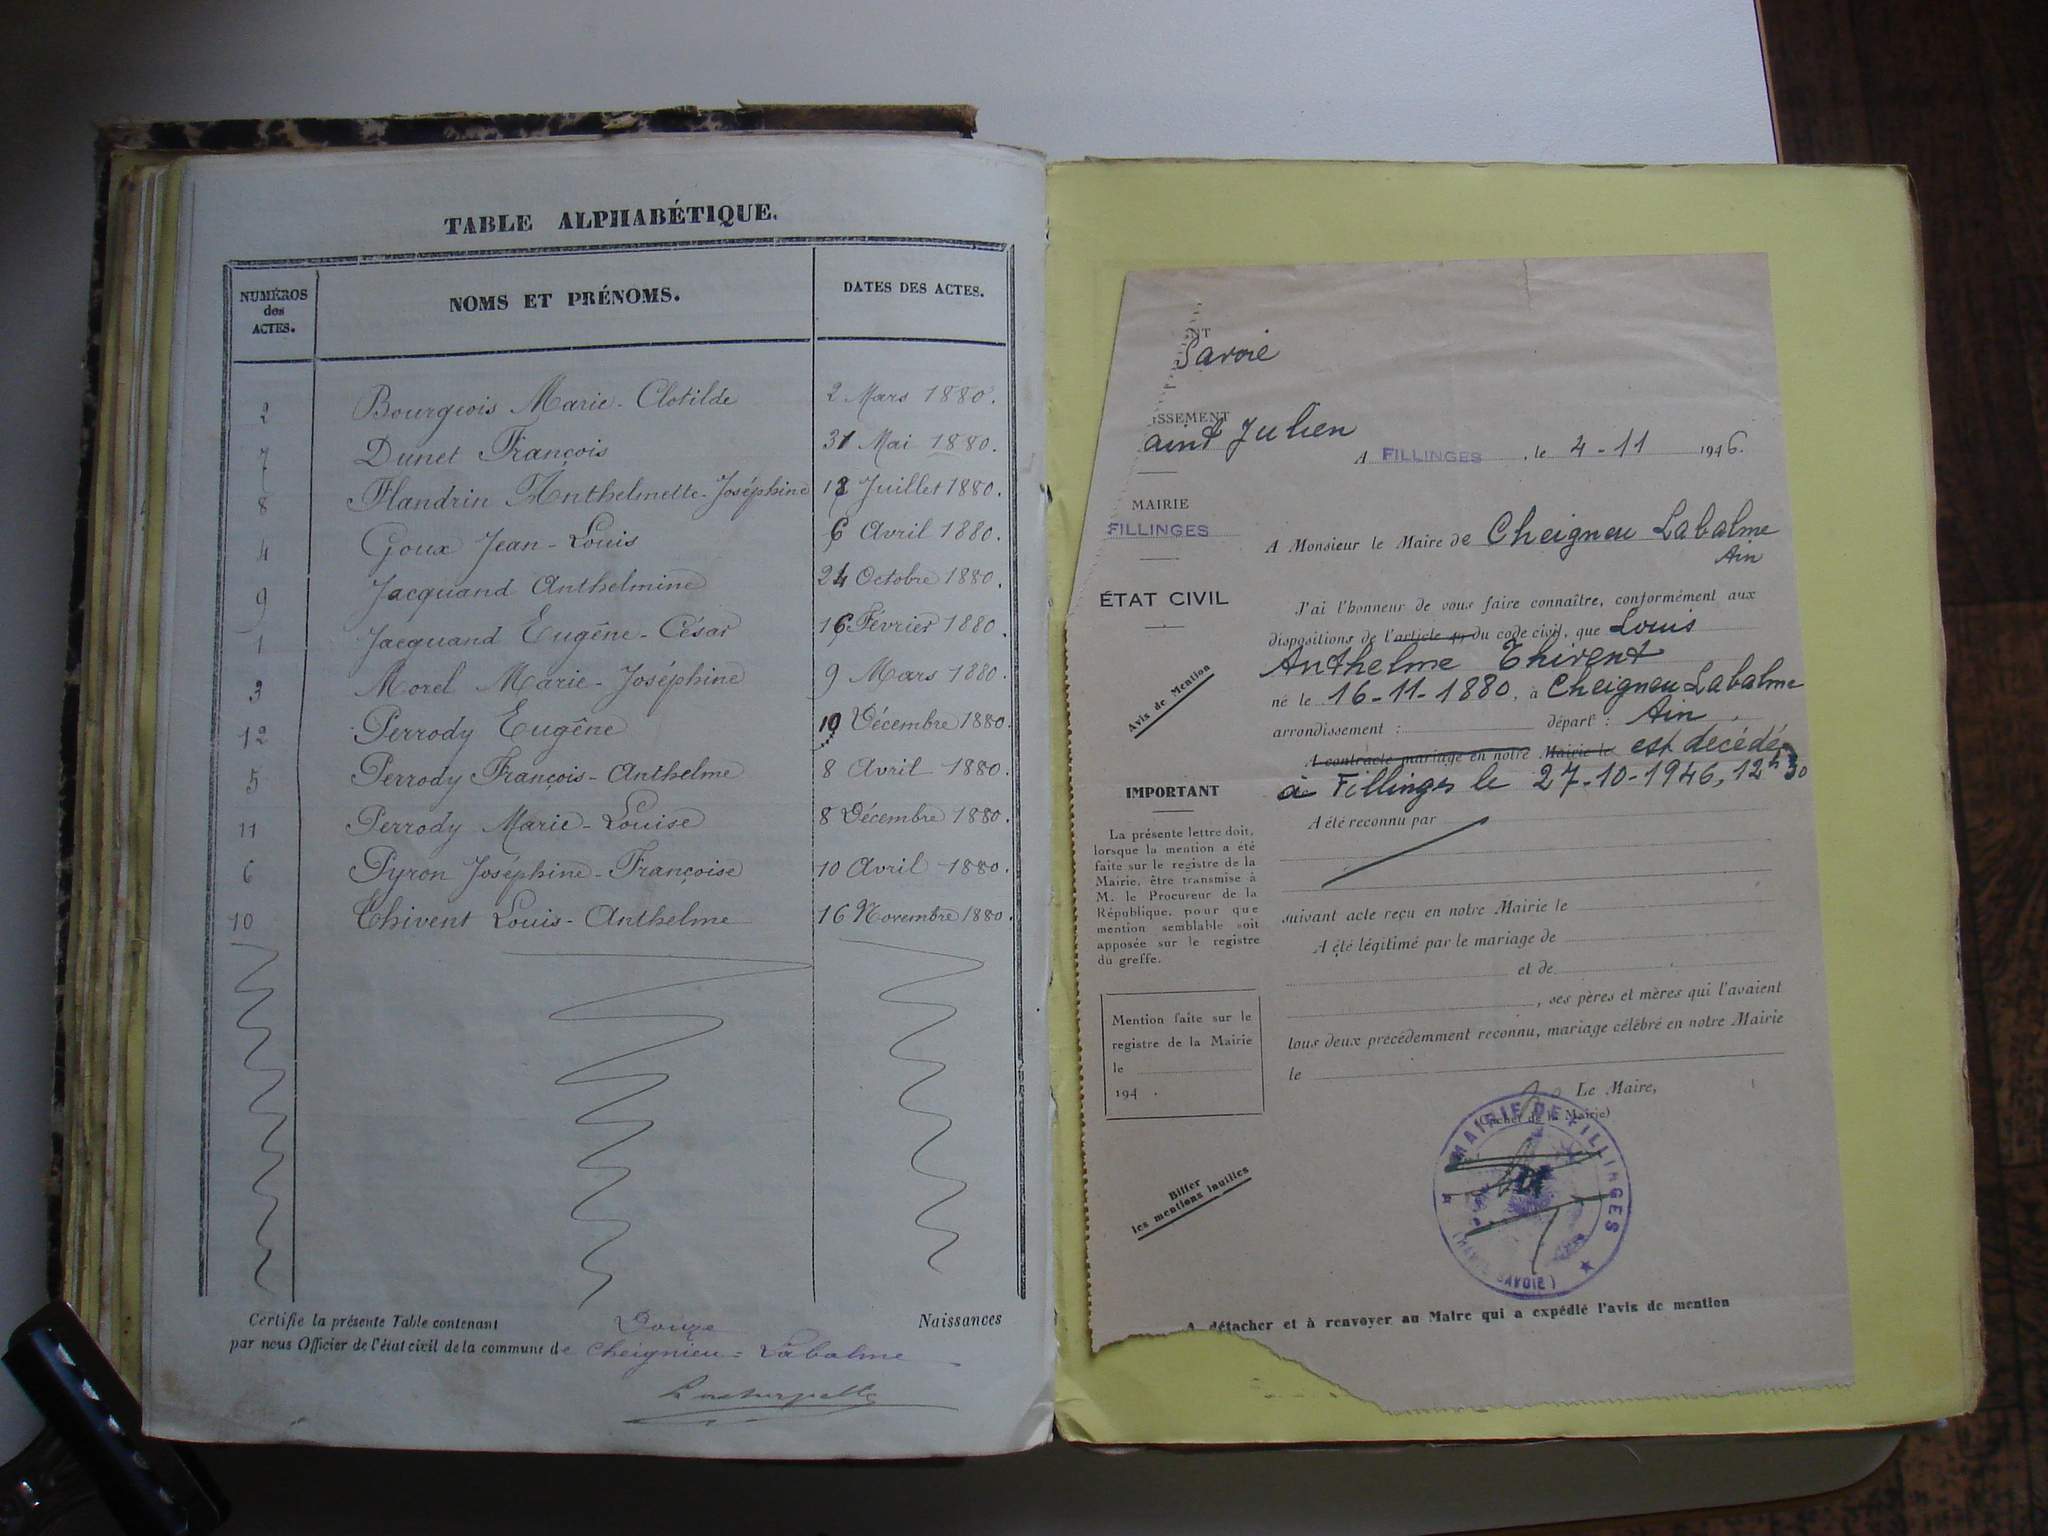 TABLE ALPHABÉTIQUE.
NUMÉROS
des
ACTES.
NOMS ET PRÉNOMS.
DATES DES ACTES.
2 Bourgeois Marie-Clotilde 2 Mars 1880.
7 Dunet François 31 Mai 1880.
8 Flandrin Anthelmette-Joséphine Juillet 1880.
4 Goux Jean-Louis 6 Avril 1880.
9 Jacquand Anthelmine 24 Octobre 1880.
1 Jacquand Eugêne-César 16 Février 1880.
3 Morel Marie-Joséphine 9 Mars 1880.
12 Perrody Eugêne 19 Décembre 1880.
5 Perrody François-Anthelme 8 Avril 1880.
11 Perrody Marie-Louise 8 Décembre 1880.
6 Pyron Joséphine-Françoise 10 Avril 1880.
10 Thivent Louis-Anthelme 16 Novembre 1880.
Certifie la présente Table contenant Douze Naissances
par nous Officier de l'état civil de la commune de Cheignieu=Labalme
NT
Savoie
ISSEMENT
aint Julien
A FILLINGES, le 4-11 1946.
MAIRIE
FILLINGES
A Monsieur le Maire de Cheigneu Labalme
Ain
ÉTAT CIVIL
J'ai l'honneur de vous faire connaître, conformément aux
dispositions de l'article 49 du code civil, que Louis
Anthelme Thivent
né le 16-11-1880, à Cheigneu Labalme
arrondissement : départ : Ain
A contracté mariage en notre Mairie le est décédé
à Fillinges le 27-10-1946, 12h30
A été reconnu par
suivant acte reçu en notre Mairie le
A été légitimé par le mariage de
et de
, ses pères et mères qui l'avaient
tous deux précédemment reconnu, mariage célébré en notre Mairie
le
Le Maire,
(Cachet de la Mairie)
MAIRIE DE FILLINGES
(HAUTE SAVOIE)
Avis de Mention
IMPORTANT
La présente lettre doit,
lorsque la mention a été
faite sur le registre de la
Mairie, être transmise à
M. le Procureur de la
République, pour que
mention semblable soit
apposée sur le registre
du greffe.
Mention faite sur le
registre de la Mairie
le
194 .
Biffer
les mentions inutiles
A détacher et à renvoyer au Maire qui a expédié l'avis de mention